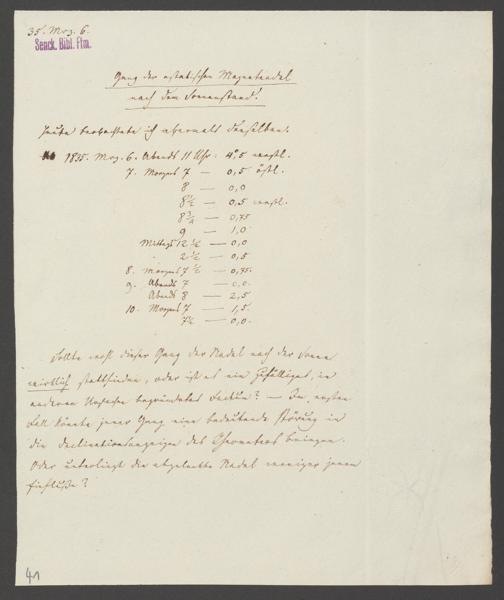 35. Mrz. 6.
Senck. Bibl. Ffm.
Gang der astatischen Magnetnadel
nach dem Sonnenstand!
Heute beobachtete ich abermals denselben.
1835. Mrz. 6. Abends 11 Uhr: 4°,5 westl.
7. Morgens 7 — 0,5 östl.
8 — 0,0
8½ — 0,5 westl.
8¾ — 0,75
9 — 1,0
Mittags 12½ — 0,0
" 2½ — 0,5
8. Morgens 7½ — 0,75.
9. Abends 7 — 0,0.
Abends 8 — 2,5
10. Morgens 7 — 1,5.
7½ — 0,0.
Sollte wohl dieser Gang der Nadel nach der Sonne
wirklich stattfinden, oder ist es ein Zufälliges, in
anderen Ursachen begründetes Factum? — Im ersten
Fall könnte jener Gang eine bedeutende Störung in
die Declinationsanzeigen des bringen.
Oder unterliegt die abgelenkte Nadel weniger jenem
Einfluße?
41